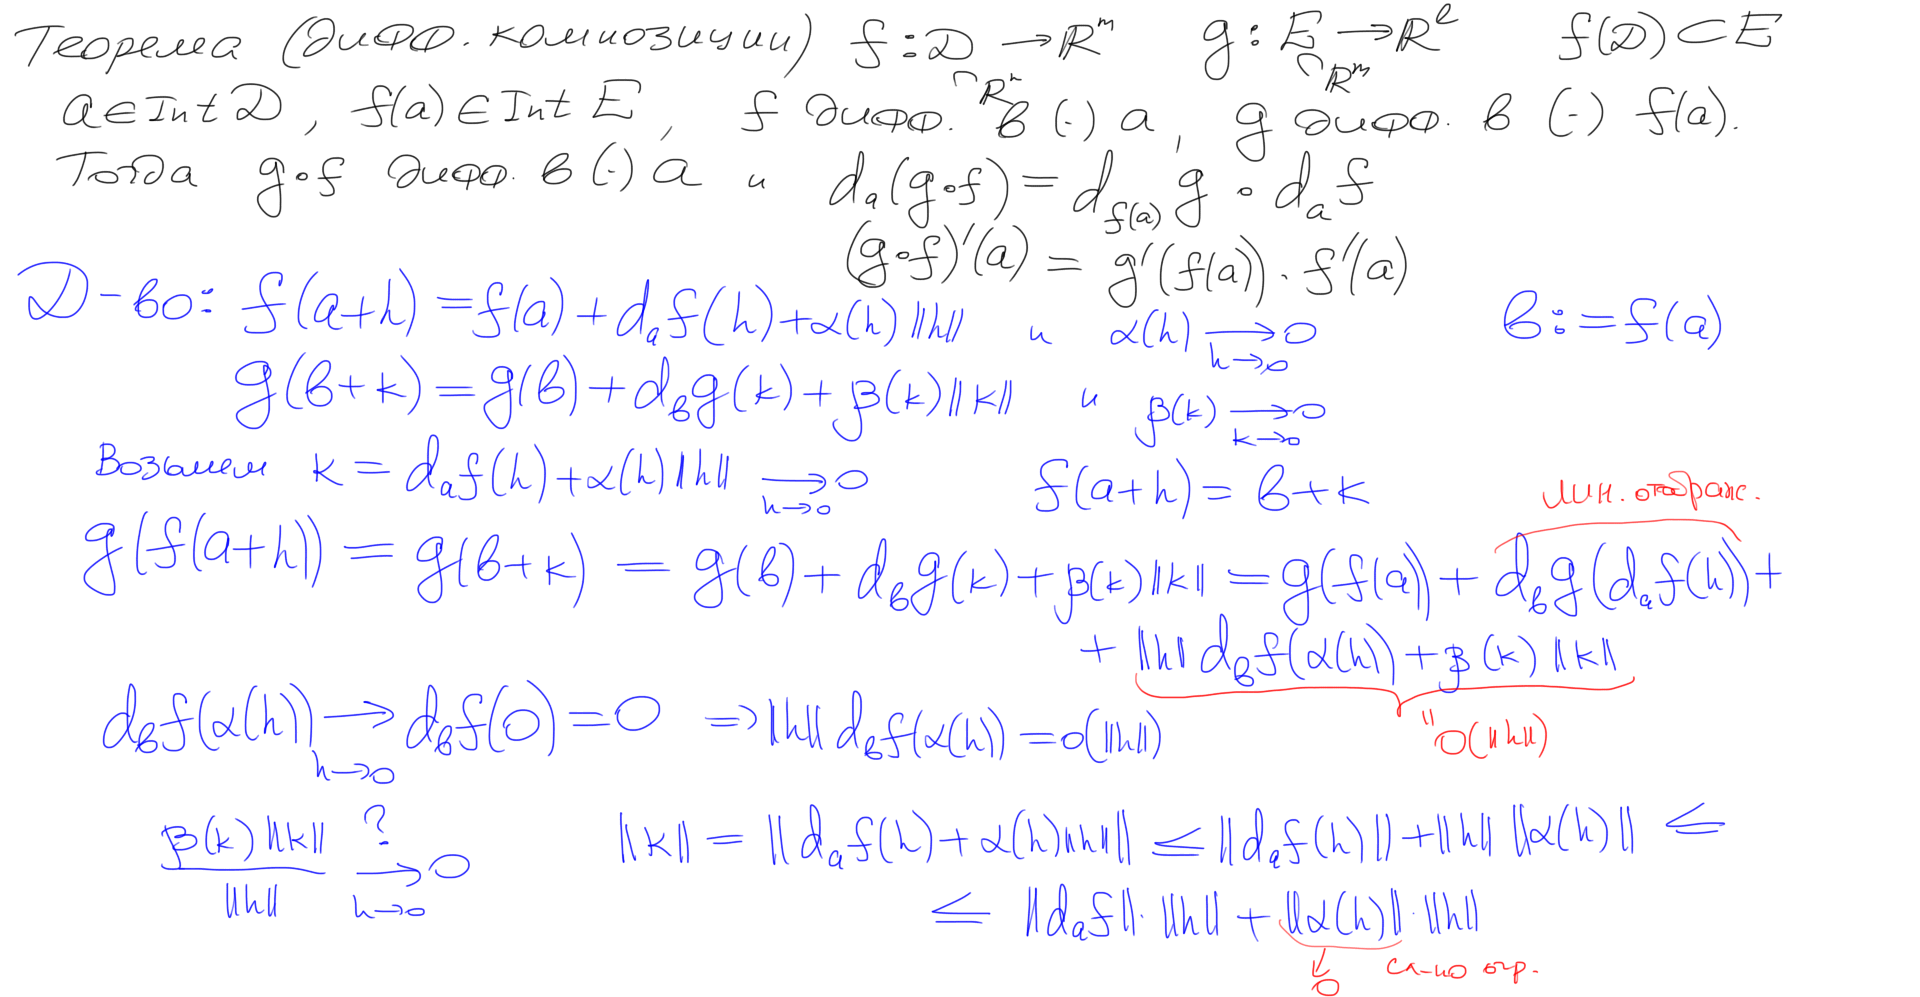 Теорема (дифф. композиции) f : D → ℝᵐ g : E → ℝˡ f(D) ⊂ E
∩ ℝⁿ ∩ ℝᵐ
a ∈ Int D, f(a) ∈ Int E, f дифф. в (·) a, g дифф. в (·) f(a).
Тогда g∘f дифф. в (·) a и dₐ(g∘f) = d_{f(a)} g ∘ dₐ f
(g∘f)'(a) = g'(f(a)) · f'(a)
Д-во: f(a+h) = f(a) + dₐf(h) + α(h)‖h‖ и α(h) →_{h→0} 0 b := f(a)
g(b+k) = g(b) + d_b g(k) + β(k)‖k‖ и β(k) →_{k→0} 0
Возьмем k = dₐf(h) + α(h)‖h‖ →_{h→0} 0 f(a+h) = b+k
лин. отображ.
g(f(a+h)) = g(b+k) = g(b) + d_b g(k) + β(k)‖k‖ = g(f(a)) + d_b g(dₐf(h)) +
+ ‖h‖ d_b f(α(h)) + β(k)‖k‖
d_b f(α(h)) →_{h→0} d_b f(0) = 0 ⇒ ‖h‖ d_b f(α(h)) = o(‖h‖)
" o(‖h‖)
β(k)‖k‖ / ‖h‖ →^{?}_{h→0} 0 ‖k‖ = ‖dₐf(h) + α(h)‖h‖‖ ≤ ‖dₐf(h)‖ + ‖h‖ ‖α(h)‖ ≤
≤ ‖dₐf‖ · ‖h‖ + ‖α(h)‖ · ‖h‖
↓ 0 сл-но огр.